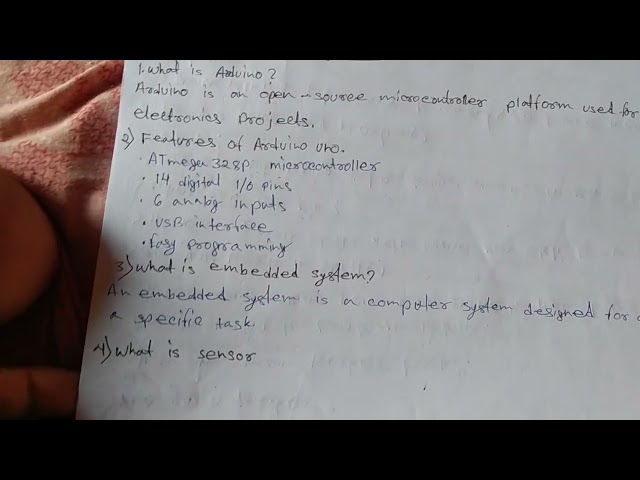 1. What is Arduino?
Arduino is an open-source microcontroller platform used for
electronics projects.
2) Features of Arduino uno.
· ATmega328p microcontroller
· 14 digital I/O pins
· 6 analog inputs
· USB interface
· Easy programming
3) What is embedded system?
An embedded system is a computer system designed for
a specific task.
4) What is sensor